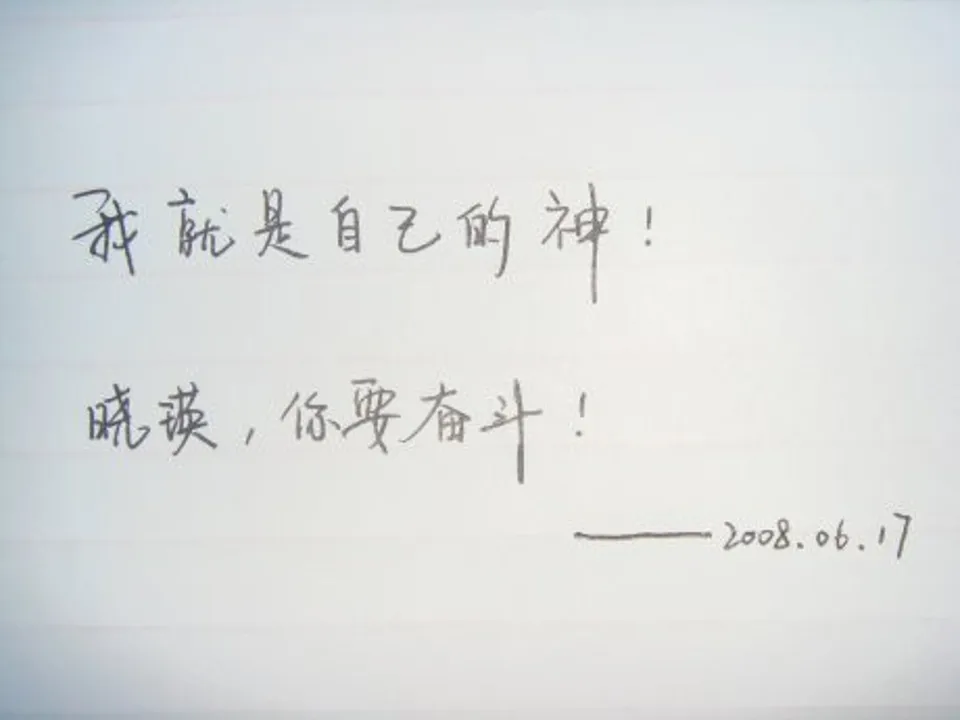 我就是自己的神！
晓瑛，你要奋斗！
——2008.06.17